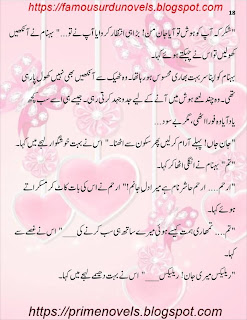 https://famousurdunovels.blogspot.com
18
"شکر کہ آپ کو ہوش تو آیا جانِ من! بڑا ہی انتظار کروایا آپ نے تو..." بہنام نے آنکھیں
کھولیں تو اس نے چہکتے ہوئے کہا۔
بہنام کو اپنا سر بہت بھاری محسوس ہو رہا تھا۔ وہ ٹھیک سے آنکھیں بھی نہیں کھول پا رہی
تھی۔ وہ چند لمحے ہوش میں آنے کے لیے جدوجہد کرتی رہی۔ جیسے ہی اسے سب کچھ
یاد آیا وہ فوراً اٹھی، مگر بے سود...
"جانِ جہاں! پہلے آرام کر لیں پھر سکون سے اٹھنا۔" اس نے بہت خوشگوار لہجے میں کہا۔
"تم" بہنام نے انگلی اٹھا کر کہا۔
"ارحم.... ارحم عاشر نام ہے میرا دل جانم!" ارحم نے اس کی بات کاٹ کر مسکراتے
ہوئے کہا۔
"تم.... تمہاری ہمت کیسے ہوئی میرے ساتھ یہ سب کرنے کی___" اس نے غصے سے
کہا۔
"ریلیکس میری جان! ریلیکس___" اس نے بہت دھیمے لہجے میں کہا۔
https://primenovels.blogspot.com